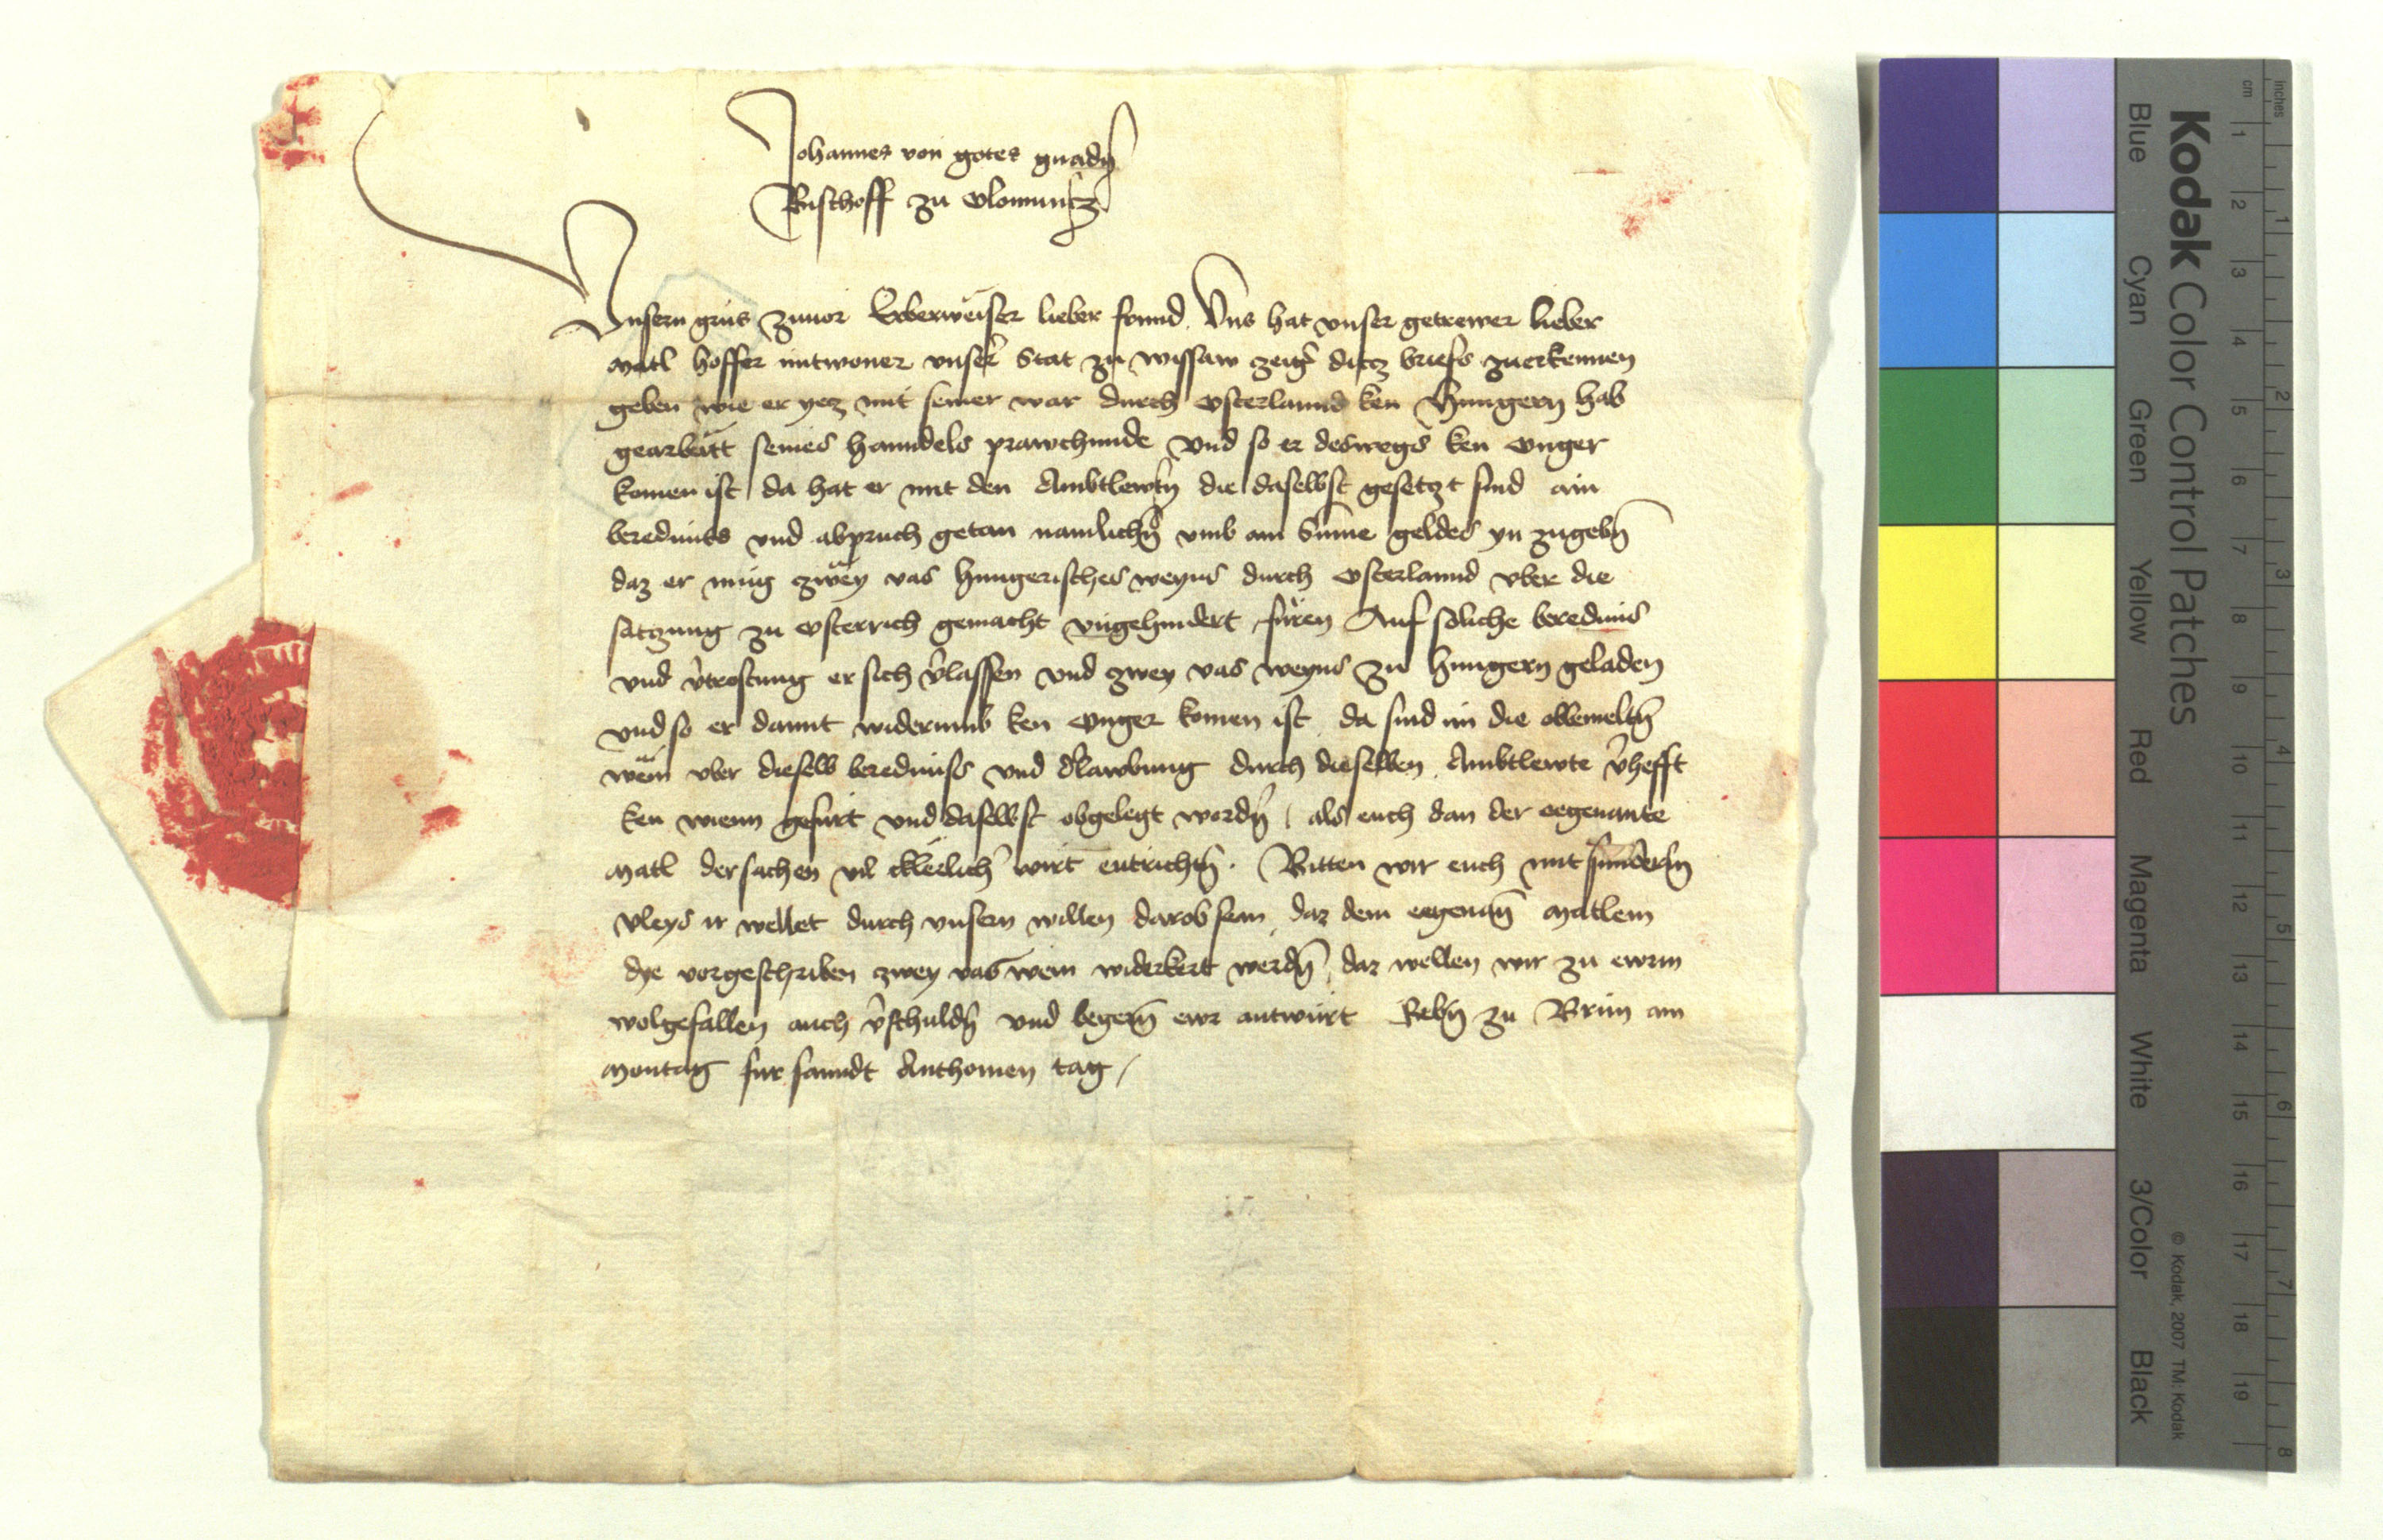 Johannes von gotes gnadn̄
Bischoff zu Olomuntz
Vnsern grus zuuor Erberweiser lieber frund. Vns hat vnser getrewer lieber
Matl hoffer mitwoner vnser̄ Stat zu wissaw zeig̉ ditz briefs zuerkennen
geben wie er yez mit seiner war durch Osterlannd ken Hungern hab
gearbaitt seines hanndels prawchunde Vnd so er deswegs ken Onger
komen ist da hat er mit den Ambtlewtn̄ die daselbst gesetzt sind ain
berednuss vnd abpruch getan namlichn̄ vmb ain Sume geldes yn zugebn̄
daz er mug zwey vas hungerisches weyns durch Osterlannd vber die
satzung zu Osterrich gemacht vngehindert füren Auf soliche berednus
vnd v̉trostung er sich v̉lassen vnd zwey vas weyns zu hungern geladen
vnd so er damit widerumb ken Onger komen ist. da sind im die obbemeltn̄
wein vber dieselb berednuss vnd d̉lawbung durch dieselben Ambtlewte v̉hefft
ken wienn gefurt vnd daselbst obgelegt wordn̄ / als euch dan der eegenante
Matl der sachen vil cklerlich̉ wirt entrichtn̄. Bitten wir euch mit sunderm
vleys ir wellet durch vnsern willen darob sein, daz dem eegenan̄ Matlem
dye vorgeschriben zwey vas wein widerkert werdn̄, daz wellen wir zu ewrm
wolgefallen auch v̉schuldn̄ vnd begern̄ ewr antwürt Gebn̄ zu Brün am
Montag fur sanndt Anthonien tag /
Kodak Color Control Patches
Blue Cyan Green Yellow Red Magenta White 3/Color Black
© Kodak, 2007 TM: Kodak
inches 1 2 3 4 5 6 7 8
cm 1 2 3 4 5 6 7 8 9 10 11 12 13 14 15 16 17 18 19